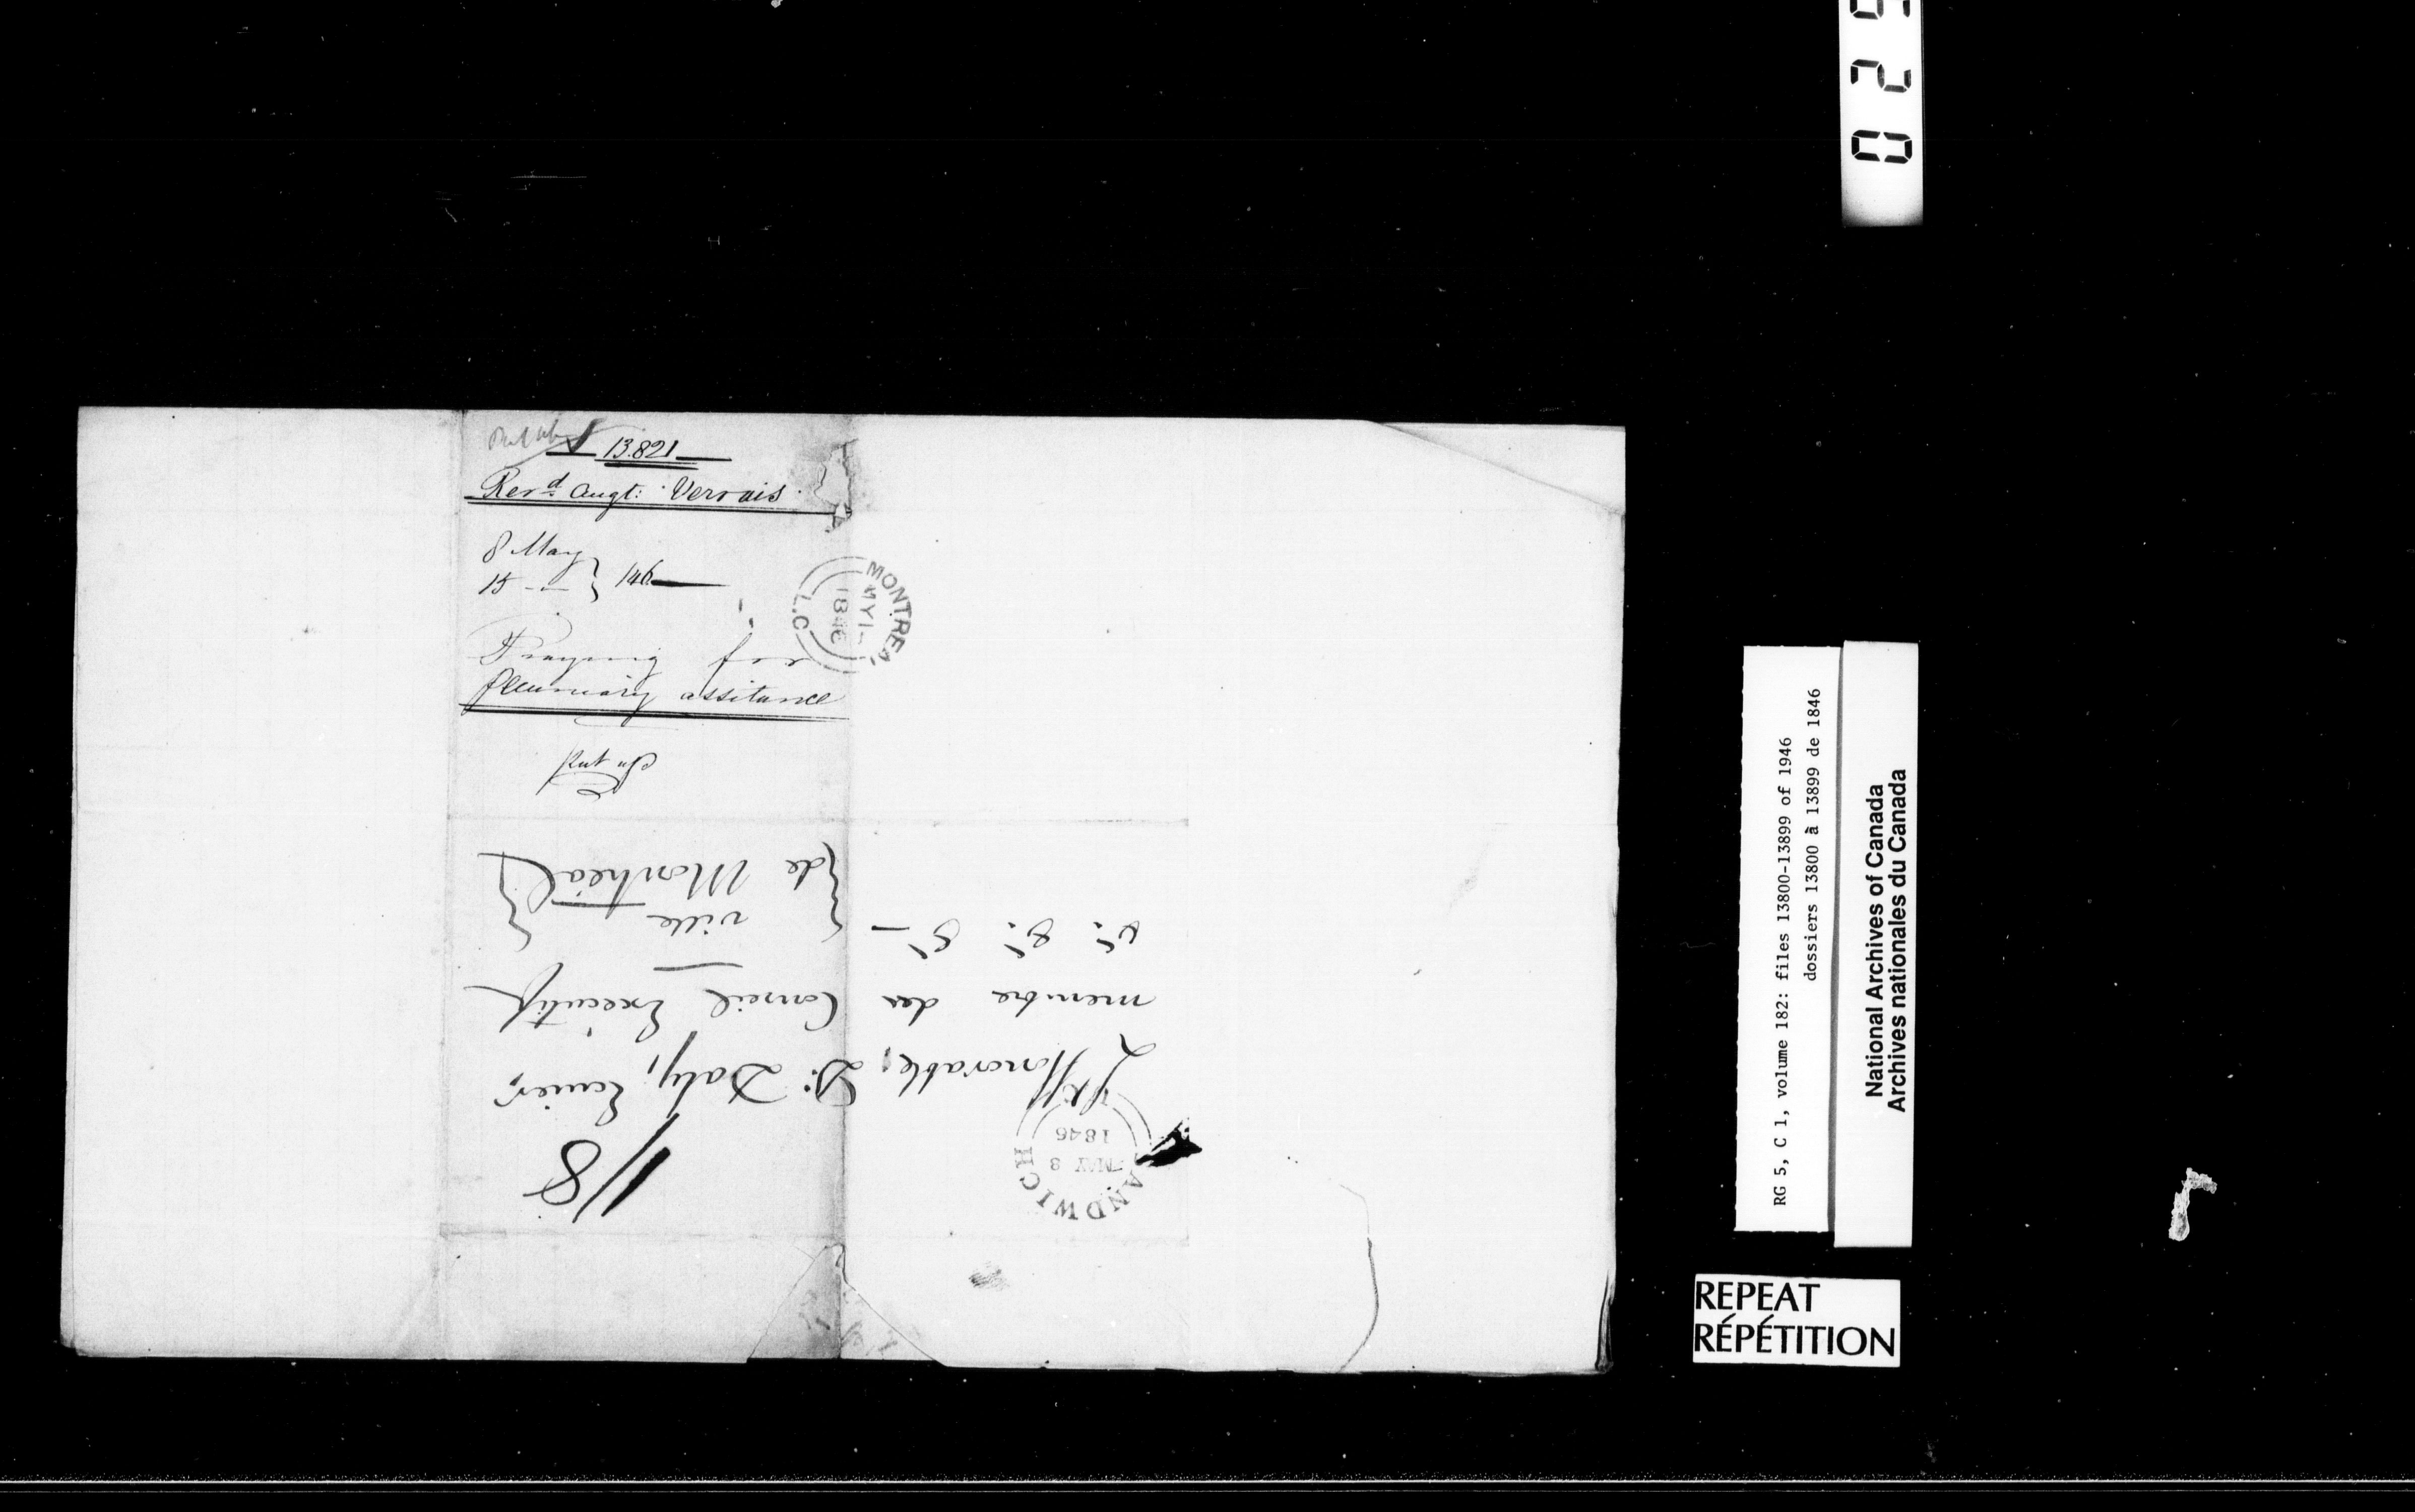 Put up
13.821
Revd. Augt: Vervais.
8 May
15 - — } 146
Praying for
Pecuniary assitance
Put up
MONTREAL
MY 1
1846
L.C
1/8
SANDWICH
MAY 8
1846
L'Honorable, D: Daly, Ecuier,
membre du Conseil Executif
&c: &c: &c —
{ ville }
{ de Montréal }
029
RG 5, C 1, volume 182: files 13800-13899 of 1946
dossiers 13800 à 13899 de 1846
National Archives of Canada
Archives nationales du Canada
REPEAT
RÉPÉTITION